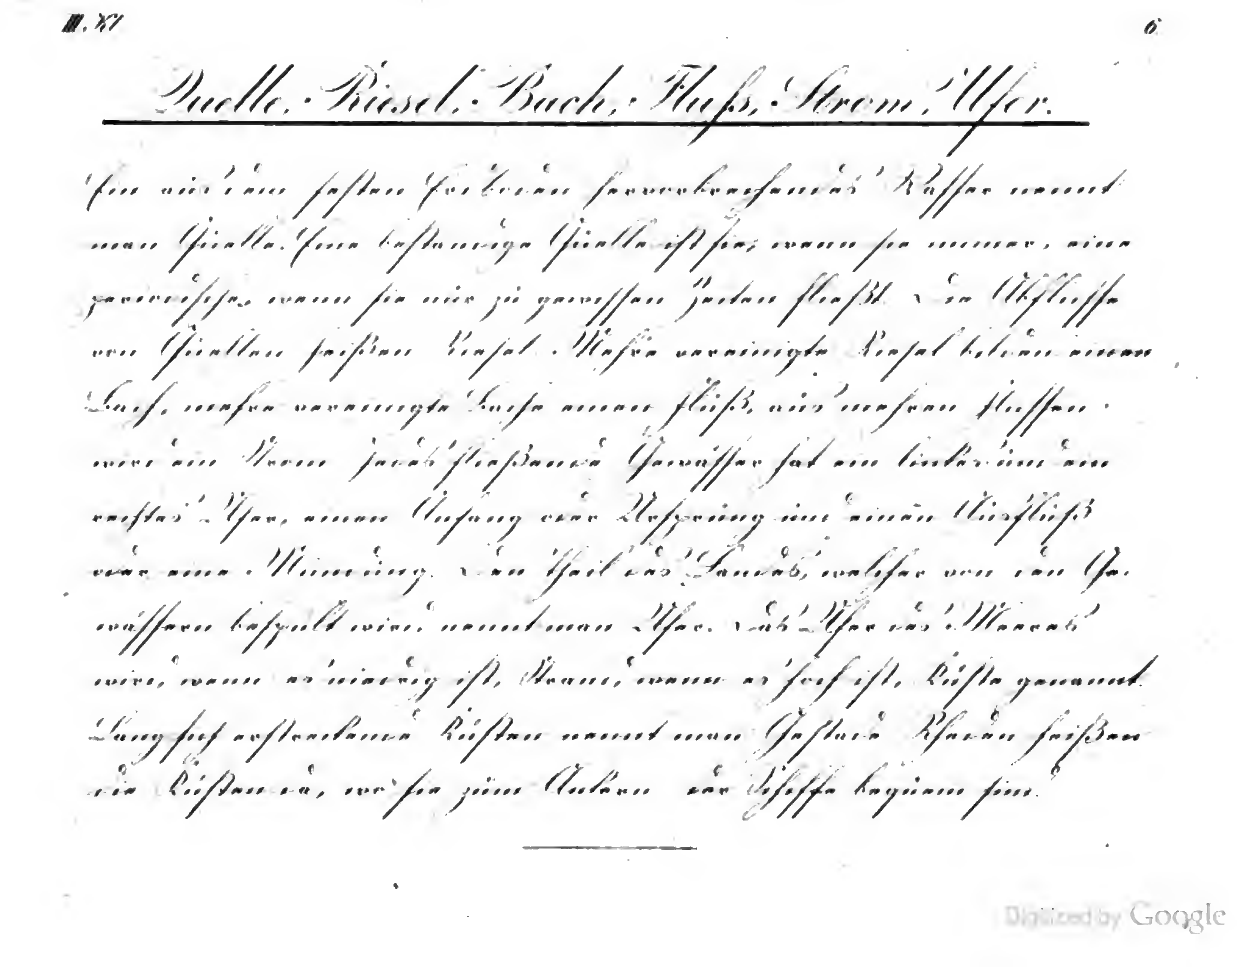 III. XI 6
Quelle, Riesel, Bach, Fluß, Strom, Ufer.
Ein aus dem festen Erdboden hervorbrechendes Wasser nennt
man Quelle. Eine beständige Quelle ist sie, wenn sie immer, eine
periodische, wenn sie nur zu gewissen Zeiten fließt. Die Abflüsse
von Quellen heißen Riesel. Mehre vereinigte Riesel bilden einen
Bach, mehre vereinigte Bäche einen Fluß, aus mehren Flüssen
wird ein Strom. Jedes fließende Gewässer hat ein linkes und ein
rechtes Ufer, einen Anfang oder Ursprung und einen Ausfluß
oder eine Mündung. Den Theil des Landes, welcher von den Ge-
wässern bespült wird, nennt man Ufer. Das Ufer des Meeres
wird, wenn es niedrig ist, Strand, wenn es hoch ist, Küste genannt.
Lang sich erstreckende Küsten nennt man Gestade. Rheden heißen
die Küsten da, wo sie zum Ankern der Schiffe bequem sind.
Digitized by Google